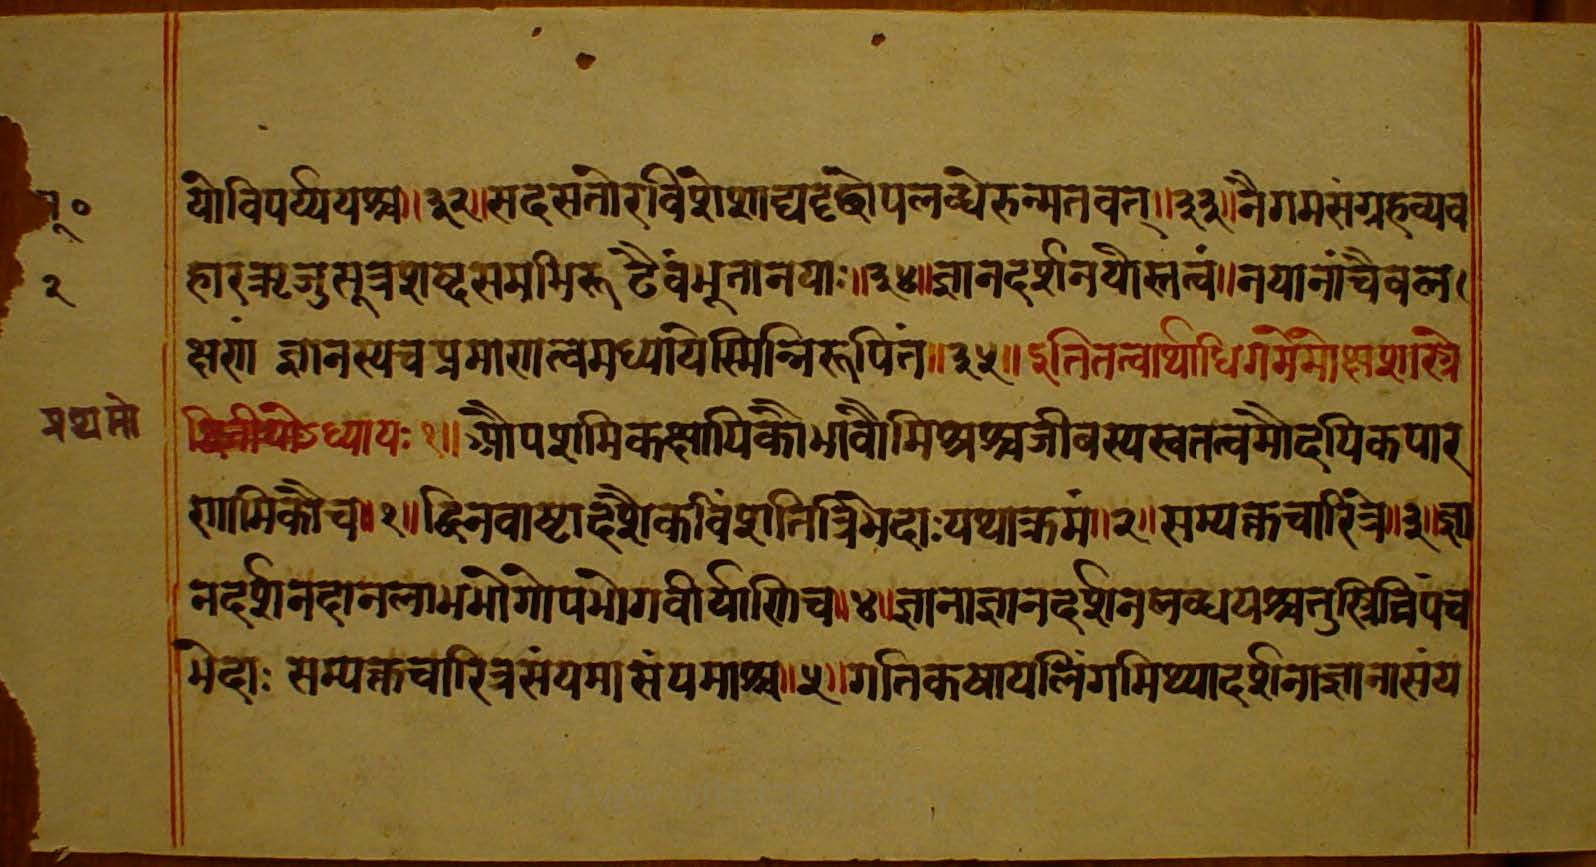 सू०
योविपर्य्ययश्च॥३२॥सदसतोरविशेशाद्यदृछोपलब्धेरुन्मतवत्॥३३॥नैगमसंग्रहव्यव
२
हारऋजुसूत्रशब्दसमभिरूढैवंभूतानयाः॥३४॥ज्ञानदर्शनयोस्तत्वं॥नयानांचैवल
क्षणं ज्ञानस्यचप्रमाणत्वमध्यायेस्मिन्निरूपितं॥३५॥इतितत्वार्थाधिगमेमोक्षशास्त्रे
प्रथमो
द्वितीयोऽध्यायः१॥औपशमिकक्षायिकौभावौमिश्रश्चजीवस्यस्वतत्वमौदयिकपार
णामिकौच॥१॥द्विनवाष्टादशैकविंशतिर्त्रिभेदाःयथाक्रमं॥२॥सम्यक्तचारित्रे॥३॥ज्ञा
नदर्शनदानलाभभोगोपभोगवीर्याणिच॥४॥ज्ञानाज्ञानदर्शनलब्धयश्चतुस्त्रित्रिपंच
भेदाः सम्यक्तचारित्रसंयमासंयमाश्च॥५॥गतिकषायलिंगमिथ्यादर्शनाज्ञानासंय